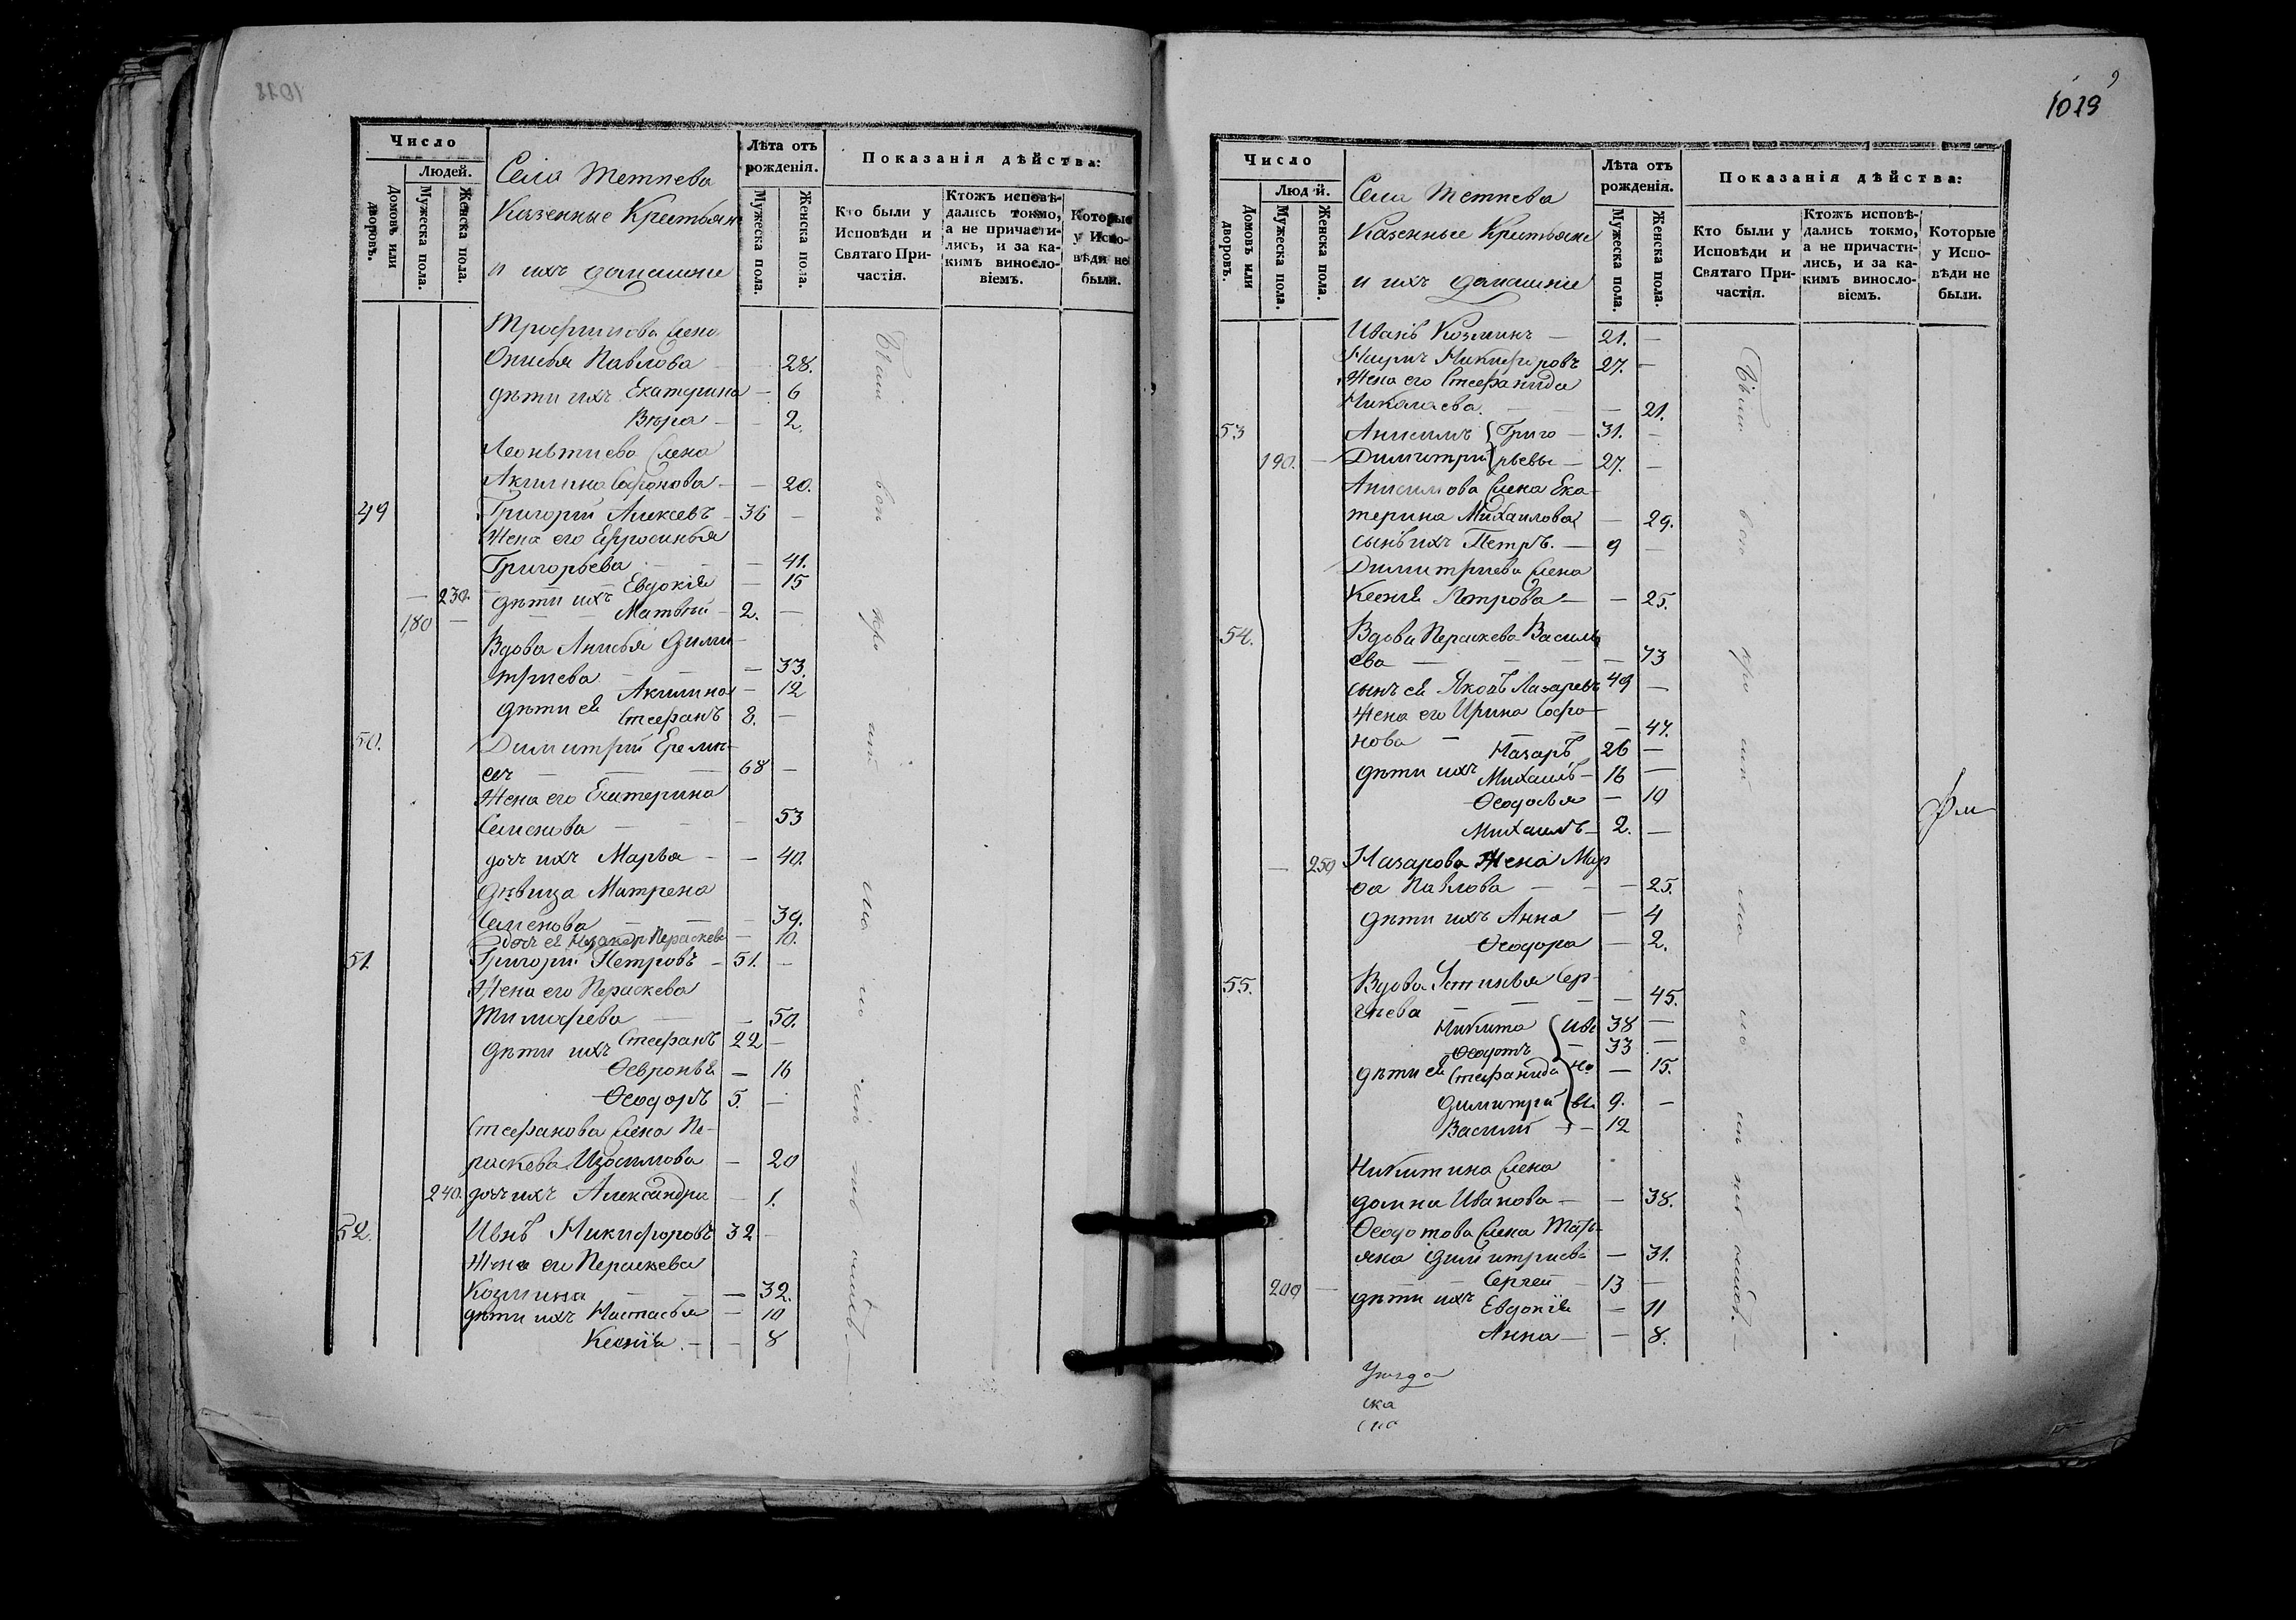 1018
Число
Людей.
Домовъ или дворовъ.
Мужеска пола.
Женска пола.
Села Тетнева
Казенные Крестьяне
и ихъ домашніе
Лѣта отъ рожденія.
Мужеска пола.
Женска пола.
Показанія дѣйства:
Кто были у Исповѣди и Святаго Причастія.
Ктожъ исповѣдались токмо, а не причастились, и за какимъ винословіемъ.
Которые у Исповѣди не были.
Трофимова Жена
Онисья Павлова 28.
дѣти ихъ Екатерина — 6
Вѣра — — 2.
Леонтиева Жена
Акилина Софонова — — 20.
49 Григорій Алексевъ — 36 —
Жена его Ефросинья
Григорьева — — 41.
дѣти ихъ Евдокія — 15
— 230.
Матвѣй — 2. —
180 —
Вдова Анисья Дими-
триева — — 33.
дѣти ея Акилина — 12
Стефанъ 8. —
50. Димитрій Ереми-
евъ — — 68 —
Жена его Екатерина
Семенова — — 53
дочь ихъ Марья — — 40.
дѣвица Матрена
Семенова — — 39.
дочь ея Пераскева — 10.
51. Григорій Петровъ — 51. —
Жена его Пераскева
Тимофева — — 50.
дѣти ихъ Стефанъ 22 —
Ѳевронья — 16
Ѳеодоръ 5. —
Стефанова Жена Пе-
раскева Изосимова — 20
240. дочь ихъ Александра — 1.
52. Ивнъ Никифоровъ 32 —
Жена его Пераскева
Козмина — — 32.
дѣти ихъ Настасья — 10
Ксенія — — 8
1019
9
Число
Людей.
Домовъ или дворовъ.
Мужеска пола.
Женска пола.
Села Тетнева
Казенные Крестьяне
и ихъ домашніе
Лѣта отъ рожденія.
Мужеска пола.
Женска пола.
Показанія дѣйства:
Кто были у Исповѣди и Святаго Причастія.
Ктожъ исповѣдались токмо, а не причастились, и за какимъ винословіемъ.
Которые у Исповѣди не были.
Иванъ Козминъ — 21. —
Никифоровъ 27. —
Жена его Стефанида
Николаева — — 21.
53 Анисимъ { Григо — 31. —
190. — Димитрій } рьевы — 27. —
Анисимова Жена Ека-
терина Михаилова — 29.
сынъ ихъ Петръ. — 9 —
Димитриева Жена
Ксенія Петрова — — 25.
54. Вдова Пераскева Василь
ева — — — 73
сынъ ея Яковъ Лазаревъ 49 —
Жена его Ирина Софо-
нова — — 47.
Назаръ 26 —
дѣти ихъ Михаилъ — 16 —
Ѳеодосья — 10
Михаилъ — 2. —
— 250 Назарова Жена Мар
ѳа Павлова — — 25.
дѣти ихъ Анна — 4
Ѳеодора — 2.
55. Вдова Устинья Сер-
гѣева — — 45.
Никита { Ива 38 —
Ѳеодотъ — 33 —
дѣти ея Стефанида но — 15.
Димитрій вы 9. —
Василій — 12
Никитина Жена
Домна Иванова — — 38.
Ѳеодотова Жена Тать-
яна Димитриева — 31.
200 — дѣти ихъ Сергей — 13 —
Евдокія — 11
Анна — — 8.
ска